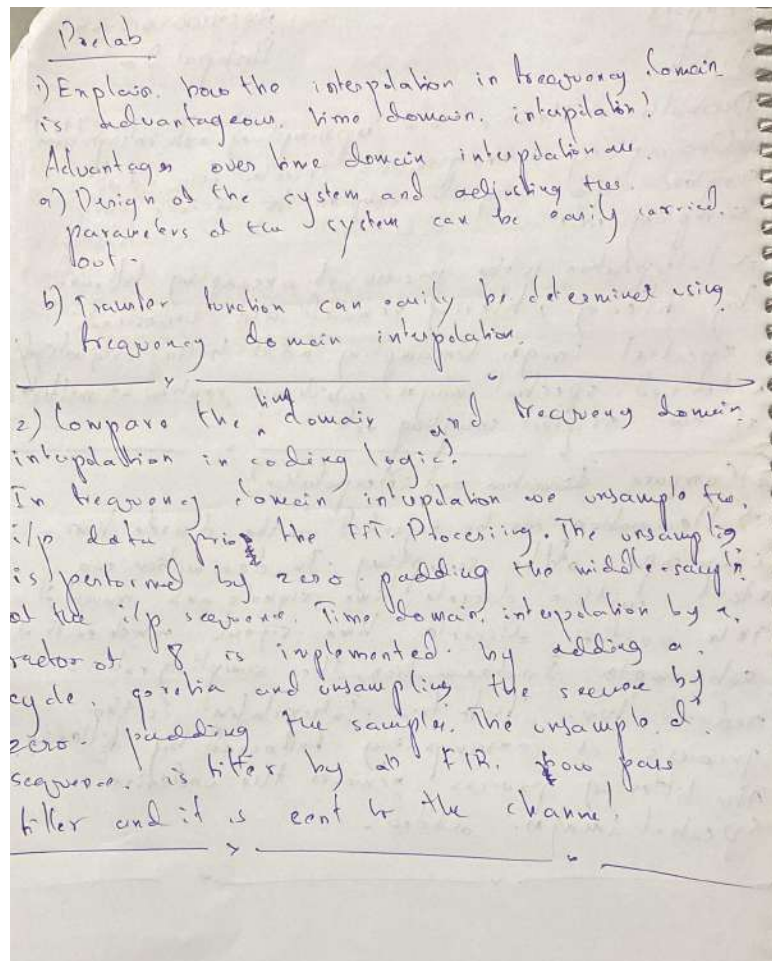 Prelab
1) Explain how the interpolation in frequency domain
is advantageous time domain interpolation?
Advantages over time domain interpolation are
a) Design of the system and adjusting the
parameters of the system can be easily carried
out.
b) Transfer function can easily be determined using
frequency domain interpolation.
2) Compare the time domain and frequency domain
interpolation in coding logic?
In frequency domain interpolation we upsample the
i/p data prior the IFFT Processing. The upsampling
is performed by zero padding the middle
of the i/p sequence. Time domain interpolation by a
factor of 8 is implemented by adding a
cycle and upsampling the by
zero padding the samples. The upsampled
sequence is filter by an FIR low pass
filter and it is sent to the channel.